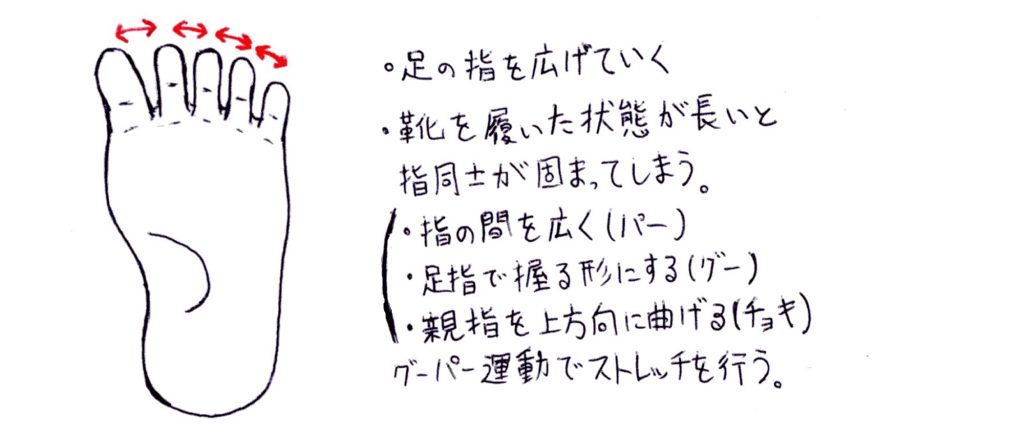 ・足の指を広げていく
・靴を履いた状態が長いと
指同士が固まってしまう。
・指の間を広く(パー)
・足指で握る形にする(グー)
・親指を上方向に曲げる(チョキ)
グーパー運動でストレッチを行う。